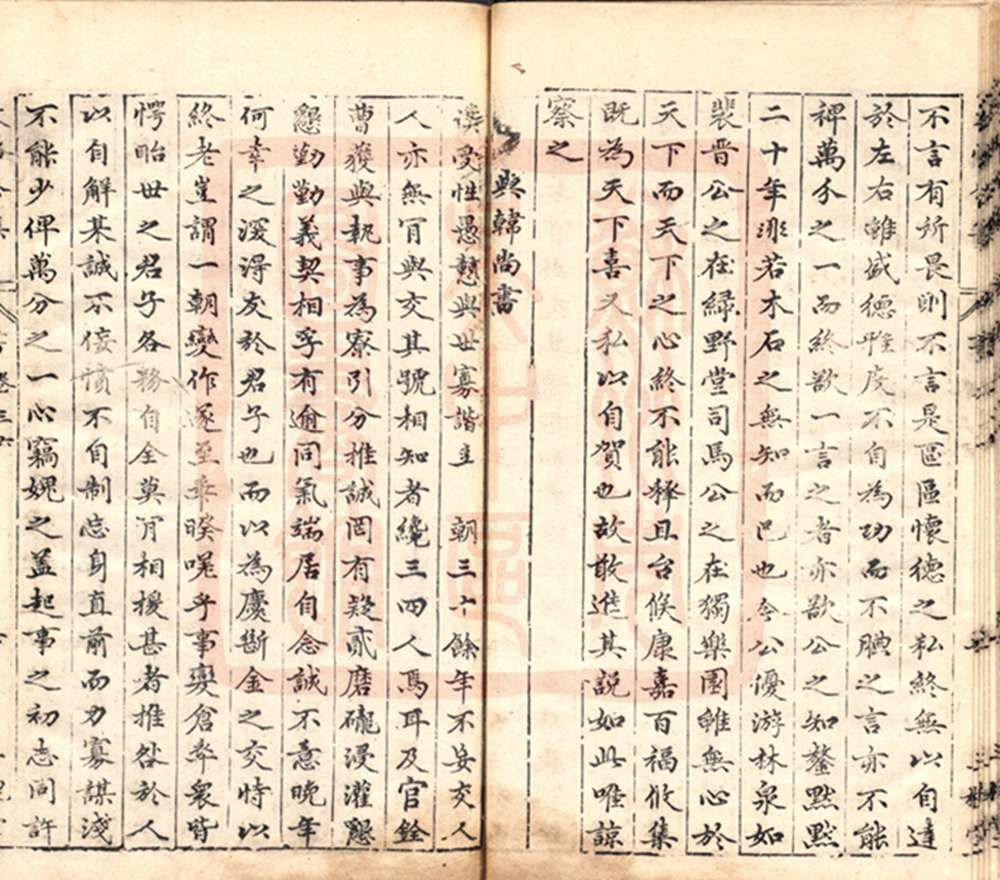 不言有所畏則不言是區區懷德之私終無以自達
於左右雖盛德雅度不自為功而不體之言亦不能
裨萬分之一而終欲一言之者亦欲公之知鏊默默
二十年非若木石之無知而已也今公優游林泉如
裴晋公之在綠野堂司馬公之在獨樂園雖無心於
天下而天下之心終不能釋且台候康嘉百福攸集
既為天下喜又私以自賀也故敢進其説如此唯諒
察之
與韓尚書
謨受性愚戇與世寡諧立朝三十餘年不妄交人
人亦無肎與交其號相知者纔三四人焉耳及官銓
曹獲與執事為寮引分推誠罔有疑貳磨礲浸灌懇
懇勤勤義契相孚有逾同氣端居自念誠不意晚年
何幸之深得友於君子也而以為慶斷金之交恃以
終老豈謂一朝變作遂至乖暌嘆乎事變倉卒衆皆
愕眙世之君子各務自全莫肎相援甚者推咎於人
以自解某誠不傍憤不自制忘身直前而力寡謀淺
不能少俾萬分之一心竊媿之盖起事之初志同許